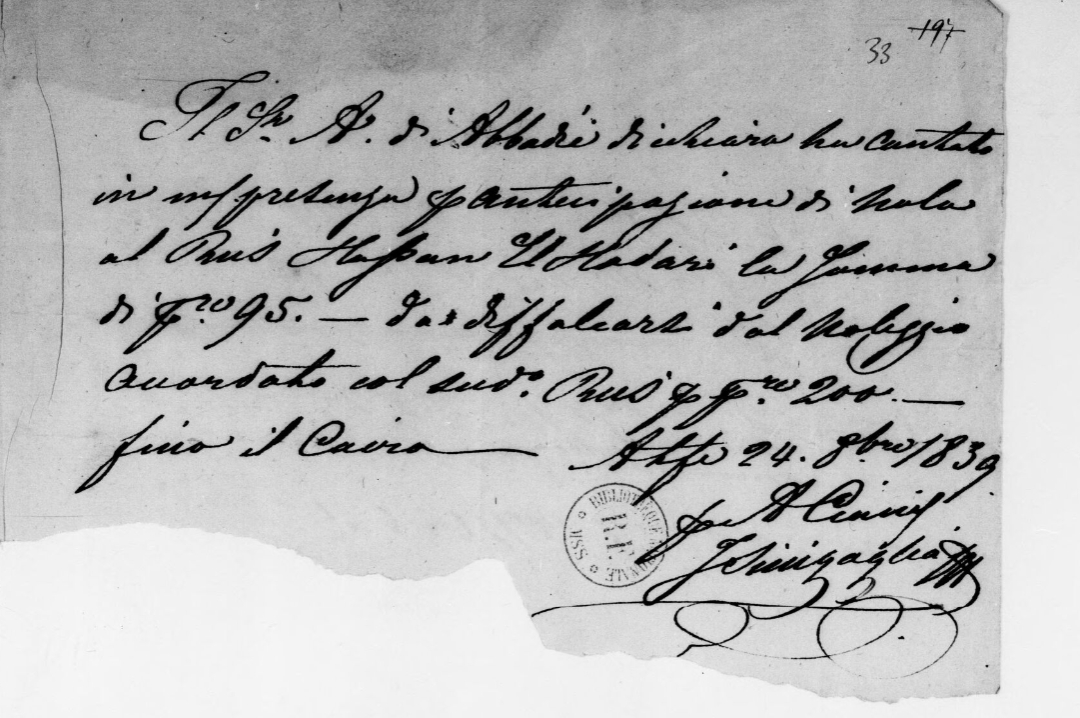 197
33
Il Sr. A. di Abbadie dichiara ha contato
in m/presenza p anticipazione di nolo
al Reis Hassan El Hadari la somma
di p.re 95. — da diffalcarsi dal noleggio
accordato col sud.o Reis p p.re 200. —
fino il Cairo — Atfe 24. 8bre 1839
p A
J Sinigaglia
BIBLIOTHEQUE NATIONALE
R.F.
MSS